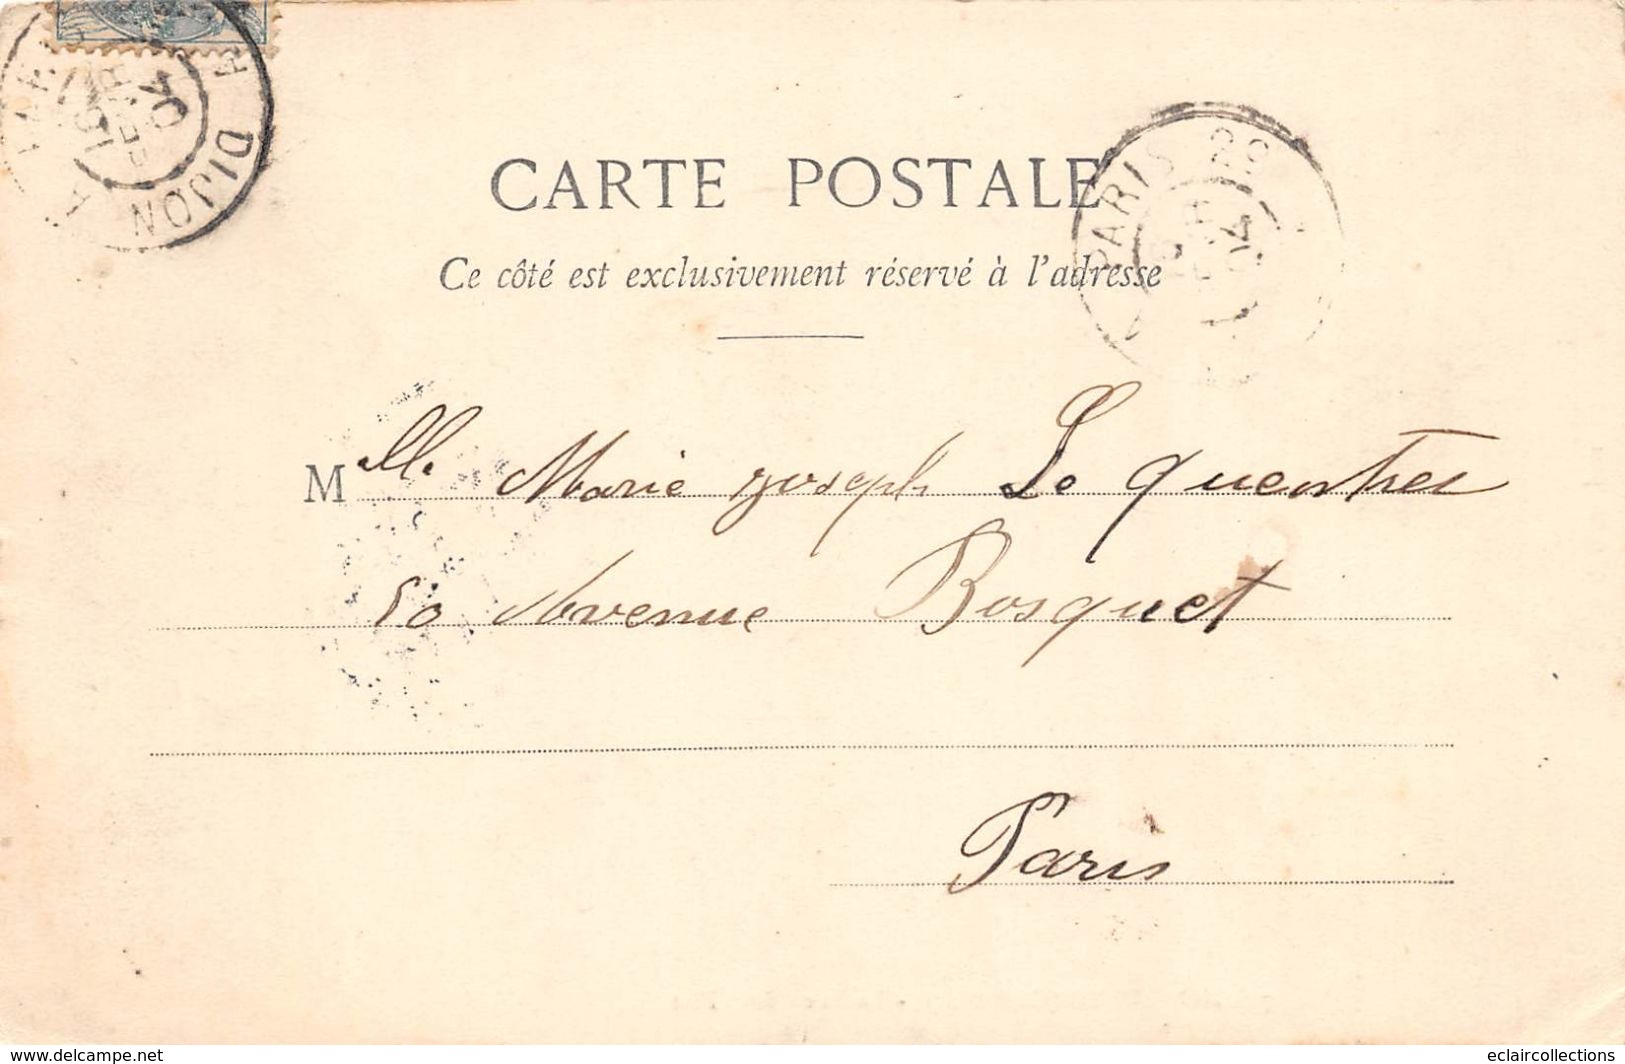 PARIS A DIJON
15
FEVR
04
CARTE POSTALE
PARIS
04
Ce côté est exclusivement réservé à l'adresse
Melle Marie Joseph Le Quentrec
50 Avenue Bosquet
Paris
www.delcampe.net
eclaircollections